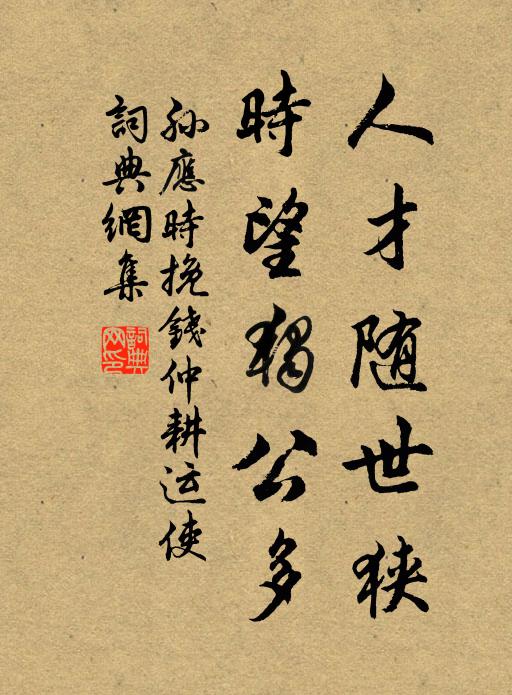 人才隨世狹
時望獨公多
孫應時挽錢仲耕运使
詞典網集
詞典网印